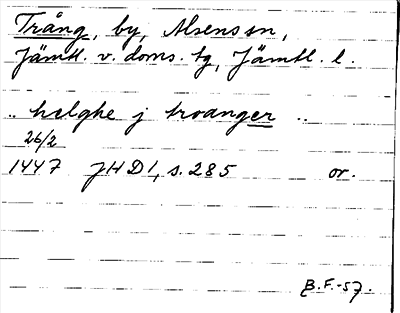 Trång, by, Alsens sn,
Jämtl. v. doms. tg, Jämtl. l.
.. hælghe j troanger ..
26/2
1447 JHD 1, s. 285 or.
B.F.-57.